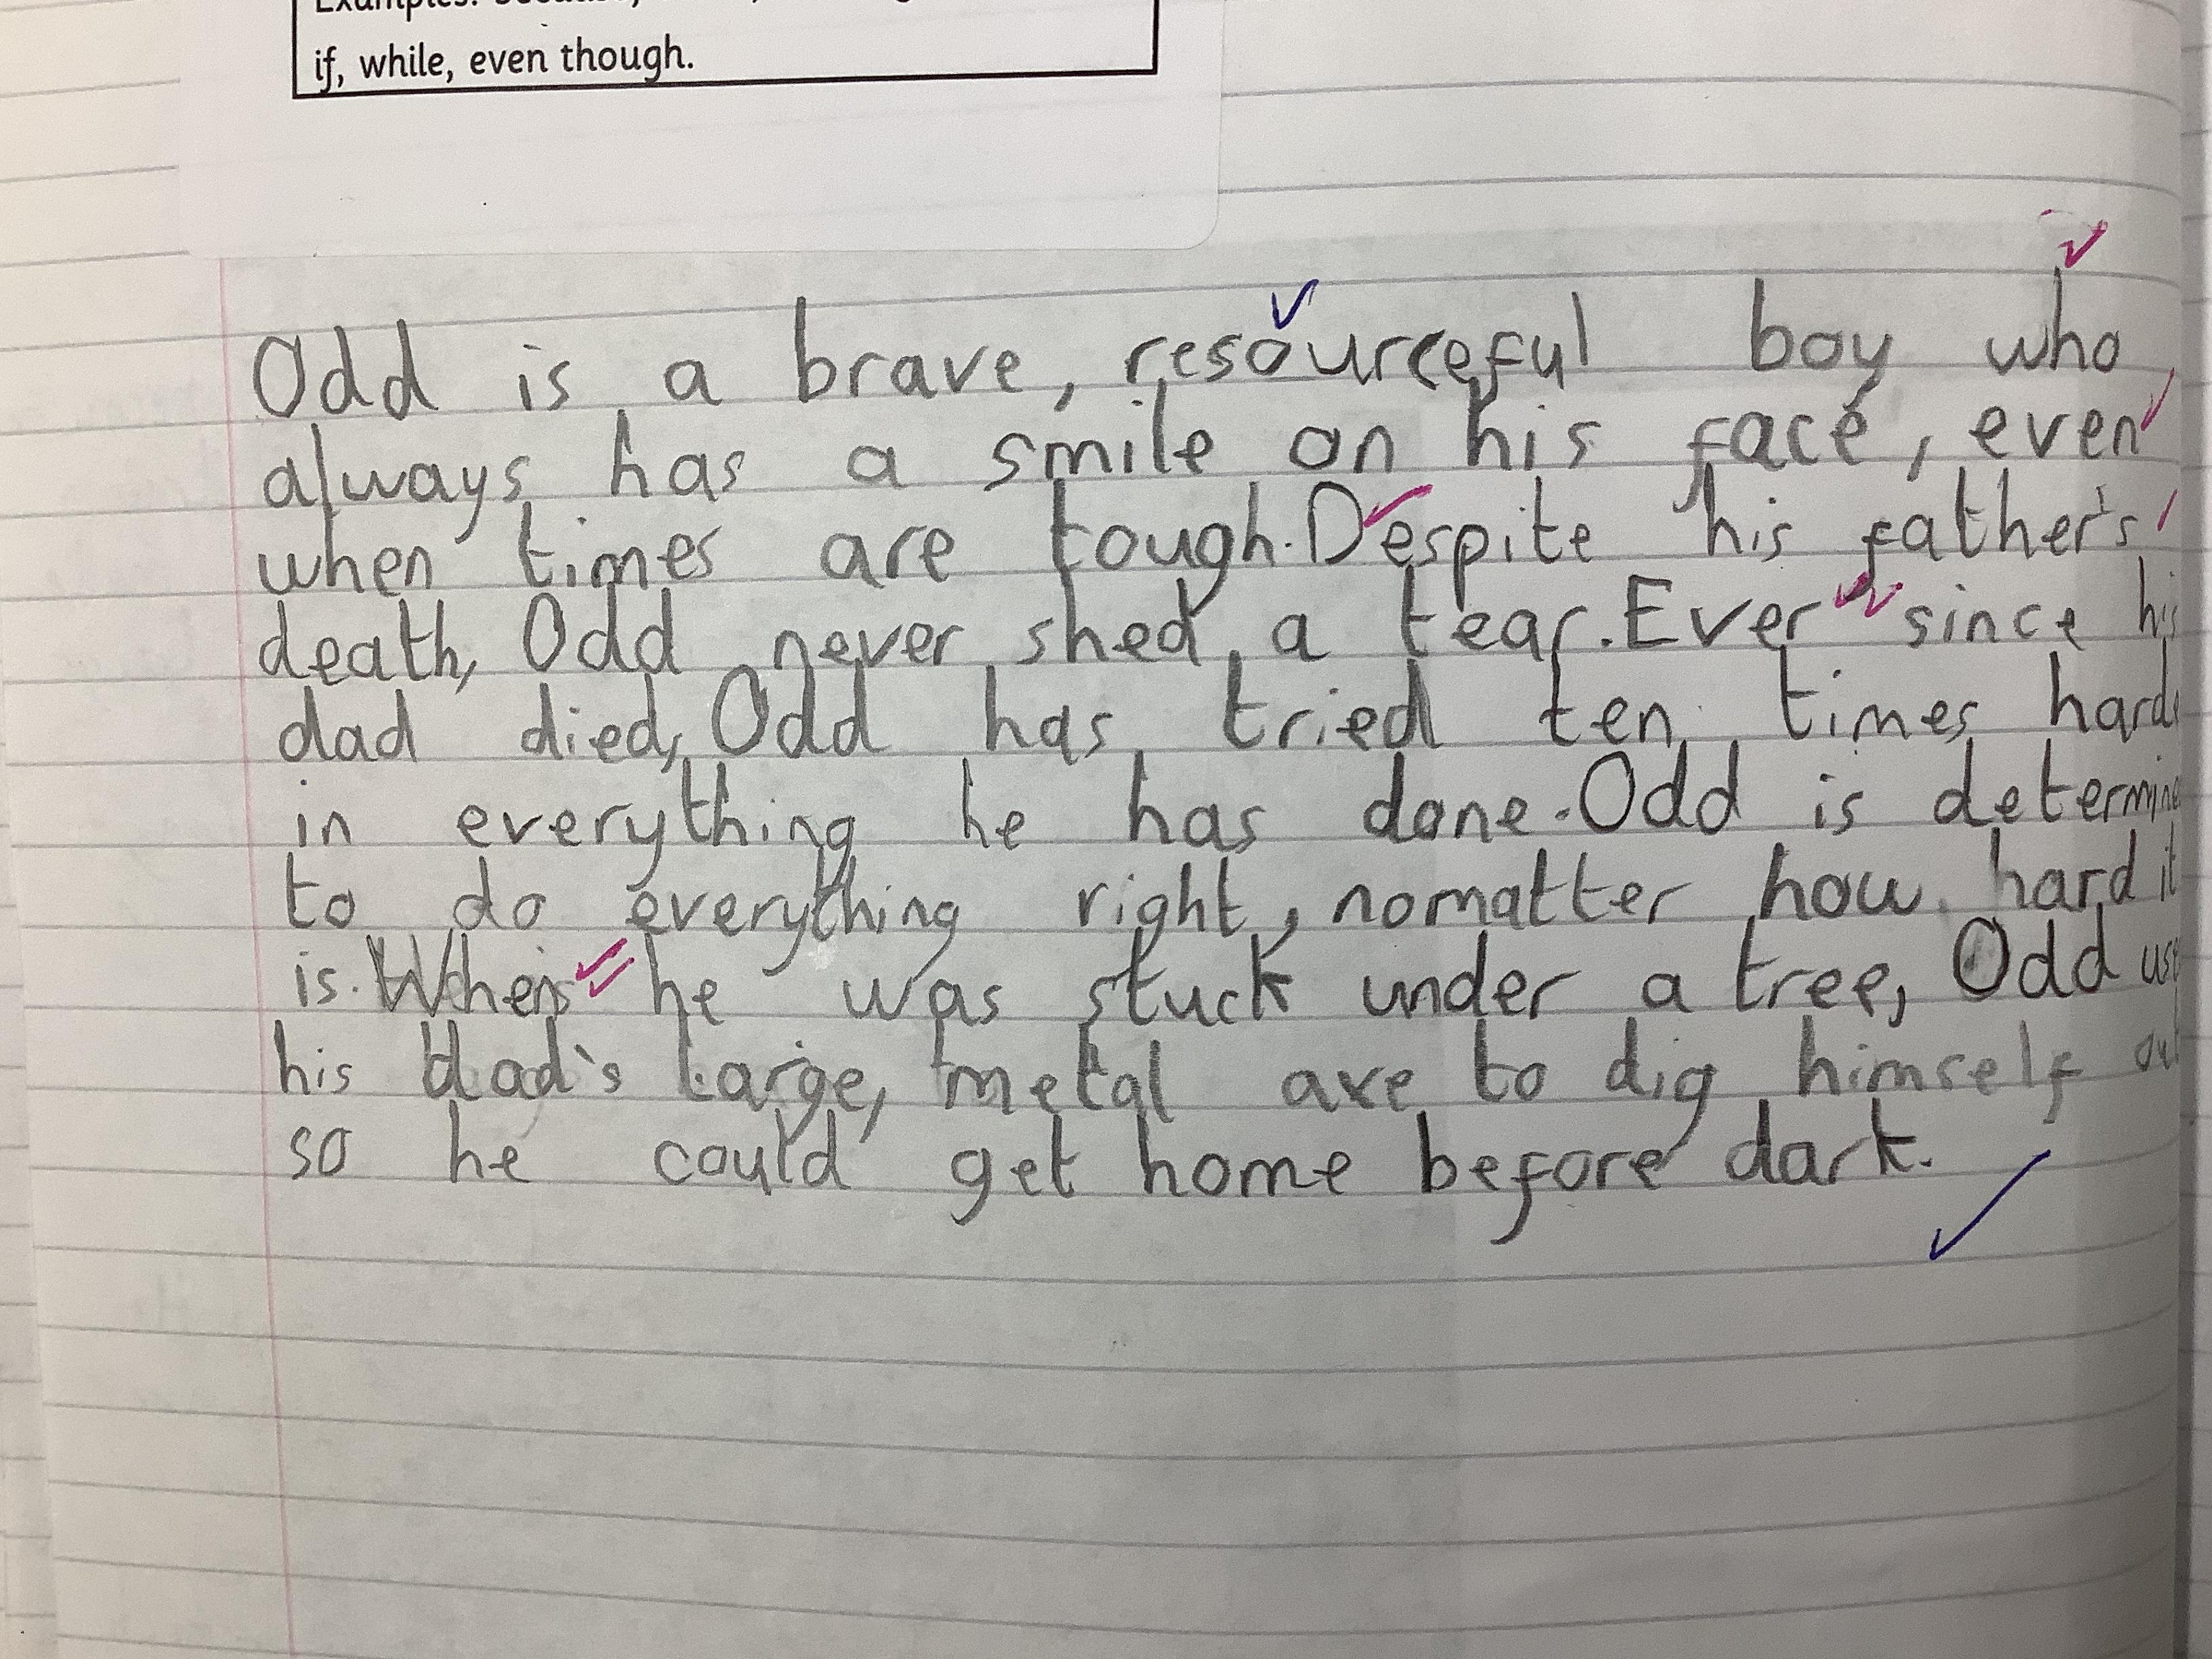 if, while, even though.
Odd is a brave, resourceful boy who
always has a smile on his face, even
when times are tough. Despite his father's
death, Odd never shed a tear. Ever since his
dad died, Odd has tried ten times
in everything he has done. Odd is
to do everything right, nomatter how hard it
is. When he was stuck under a tree, Odd
his dad's large, metal axe to dig himself out
so he could get home before dark.